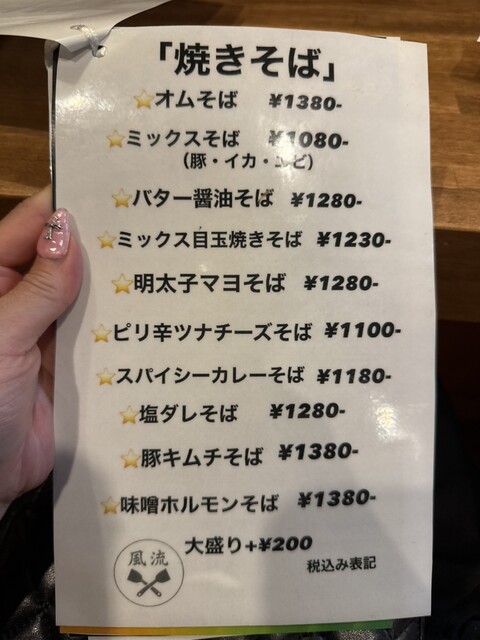 「焼きそば」
⭐オムそば ¥1380-
⭐ミックスそば ¥1080-
(豚・イカ・エビ)
⭐バター醤油そば ¥1280-
⭐ミックス目玉焼きそば ¥1230-
⭐明太子マヨそば ¥1280-
⭐ピリ辛ツナチーズそば ¥1100-
⭐スパイシーカレーそば ¥1180-
⭐塩ダレそば ¥1280-
⭐豚キムチそば ¥1380-
⭐味噌ホルモンそば ¥1380-
大盛り+¥200
税込み表記
風流